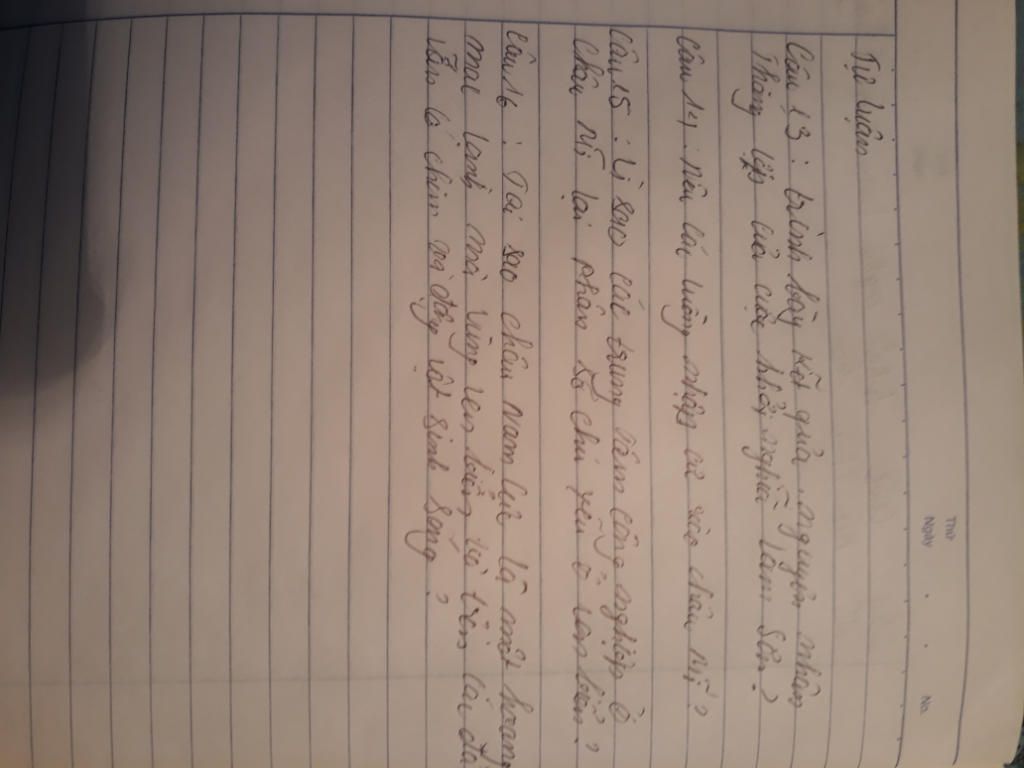 Thứ
Ngày . . No.
Tự luận
Câu 13 : trình bày kết quả, nguyên nhân
Thắng lợi của cuộc khởi nghĩa Lam Sơn ?
Câu 14 : Nêu các luồng nhập cư vào châu Mỹ ?
Câu 15 : Vì sao các trung tâm công nghiệp ở
Châu Mĩ lại phân bố chủ yếu ở ven biển ?
Câu 16 : Tại sao châu nam lực là một hoang
mạc lạnh mà vùng ven biển và trên các đảo
vẫn có chim và động vật sinh sống ?